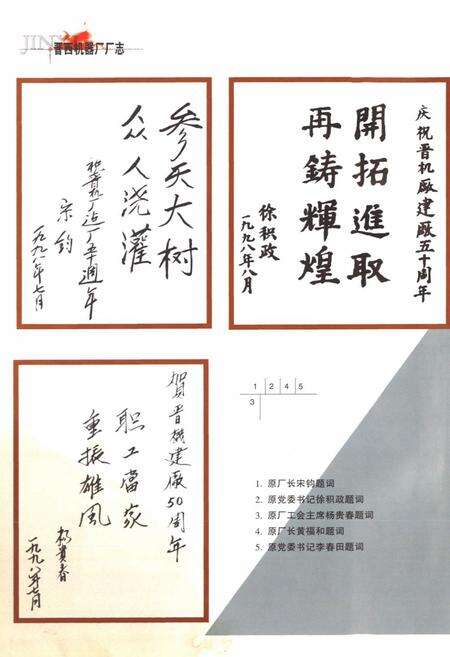 JIN
晋西机器厂厂志
参天大树
众人浇灌
祝晋机厂建厂五十周年
宋钧
一九九八年七月
庆祝晋机厰建厰五十周年
開拓進取
再鑄輝煌
徐积政
一九九八年八月
贺晋機建厰50周年
职工當家
重振雄风
杨貴春
一九九八年七月
1 2 4 5
3
1. 原厂长宋钧题词
2. 原党委书记徐积政题词
3. 原厂工会主席杨贵春题词
4. 原厂长黄福和题词
5. 原党委书记李春田题词